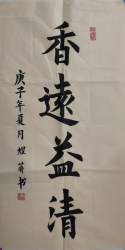 香遠益清
庚子年夏月